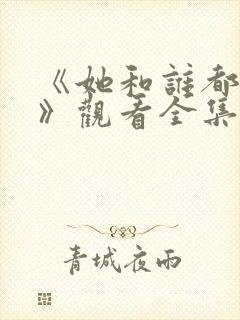 《她和誰都
》觀看全集
青城夜雨